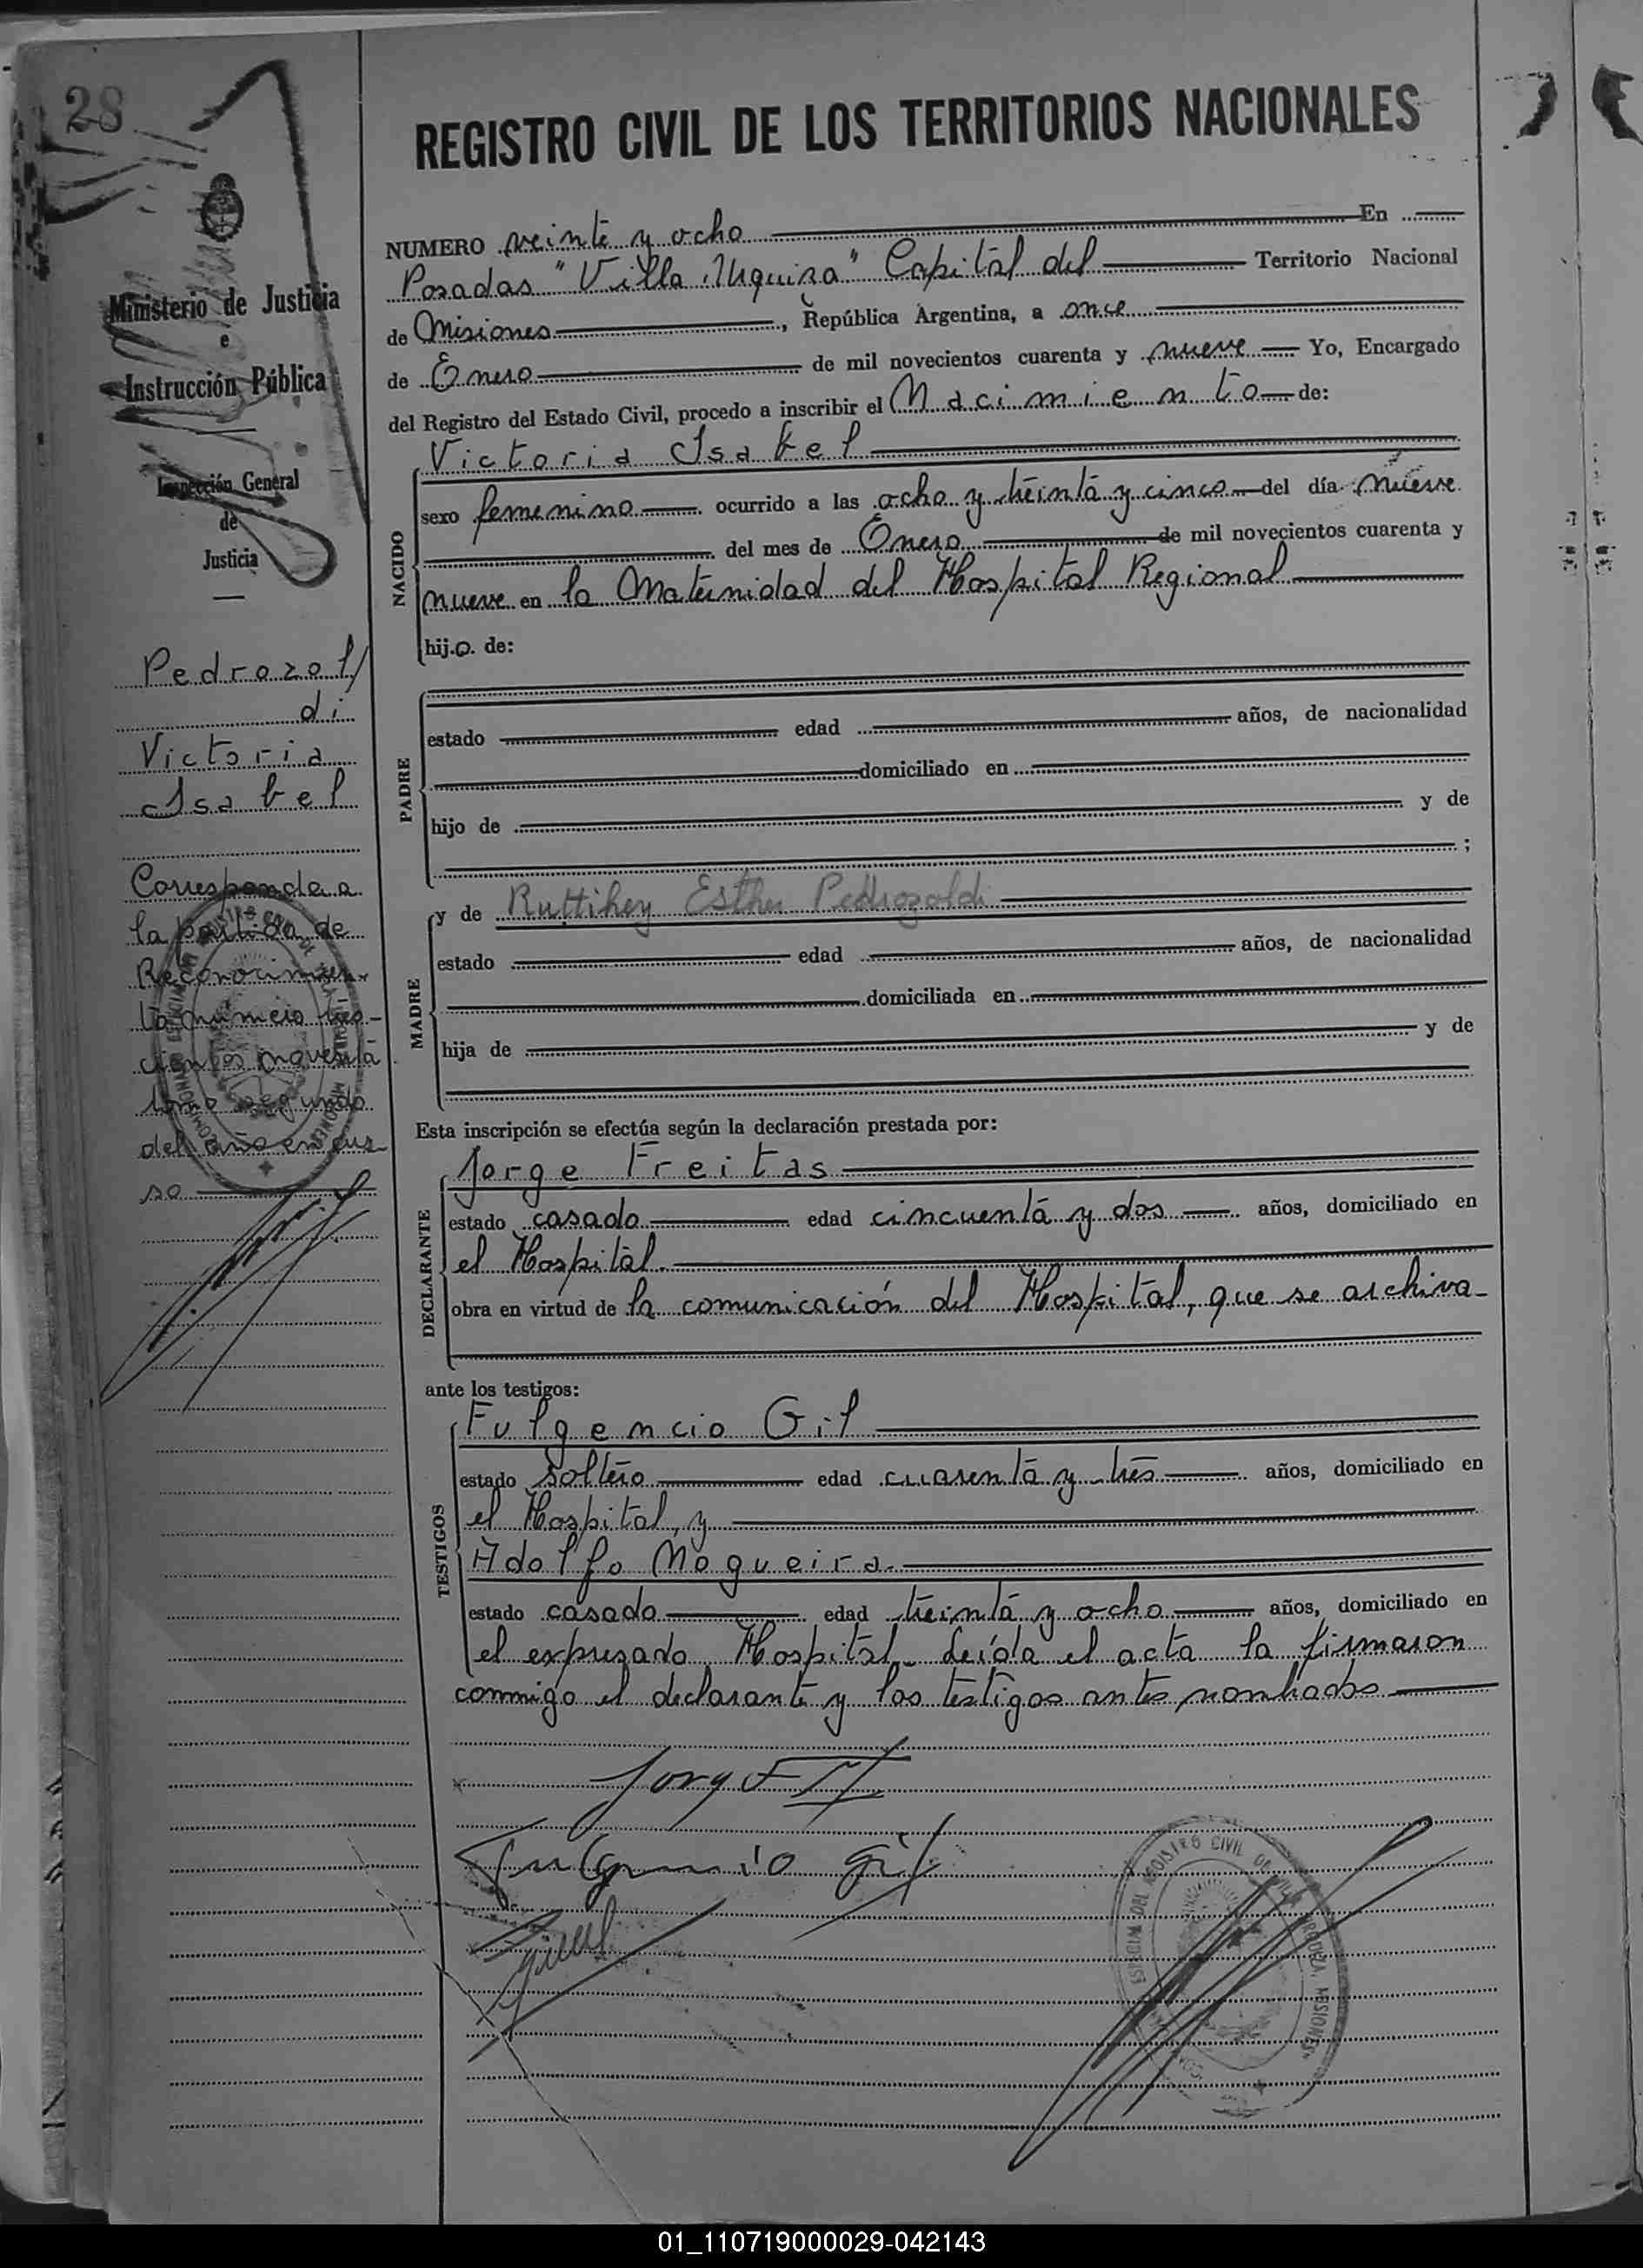 28
REGISTRO CIVIL DE LOS TERRITORIOS NACIONALES
Ministerio de Justicia
e
Instrucción Pública
Inspección General
de
Justicia
Pedrozol/
di
Victoria
Isabel
Corresponde a
la partida de
Reconocimien-
to número tres-
cientos noventa
tomo segundo
del año en cur-
so
NUMERO veinte y ocho En
Posadas "Villa Urquiza" Capital del Territorio Nacional
de Misiones, República Argentina, a once
de Enero de mil novecientos cuarenta y nueve Yo, Encargado
del Registro del Estado Civil, procedo a inscribir el Nacimiento de:
Victoria Isabel
NACIDO
sexo femenino ocurrido a las ocho y treinta y cinco del día nueve
del mes de Enero de mil novecientos cuarenta y
nueve en la Maternidad del Hospital Regional
hija de:
PADRE
estado edad años, de nacionalidad
domiciliado en
hijo de y de
;
MADRE
y de Ruttihey Esther Pedrozoldi
estado edad años, de nacionalidad
domiciliada en
hija de y de
Esta inscripción se efectúa según la declaración prestada por:
DECLARANTE
Jorge Freitas
estado casado edad cincuenta y dos años, domiciliado en
el Hospital.
obra en virtud de la comunicación del Hospital, que se archiva-
ante los testigos:
TESTIGOS
Fulgencio Gil
estado soltero edad cuarenta y tres años, domiciliado en
el Hospital, y
Adolfo Nogueira.
estado casado edad treinta y ocho años, domiciliado en
el expresado Hospital. Leída el acta la firmaron
conmigo el declarante y los testigos antes nombrados
Fulgencio Gil
01_110719000029-042143